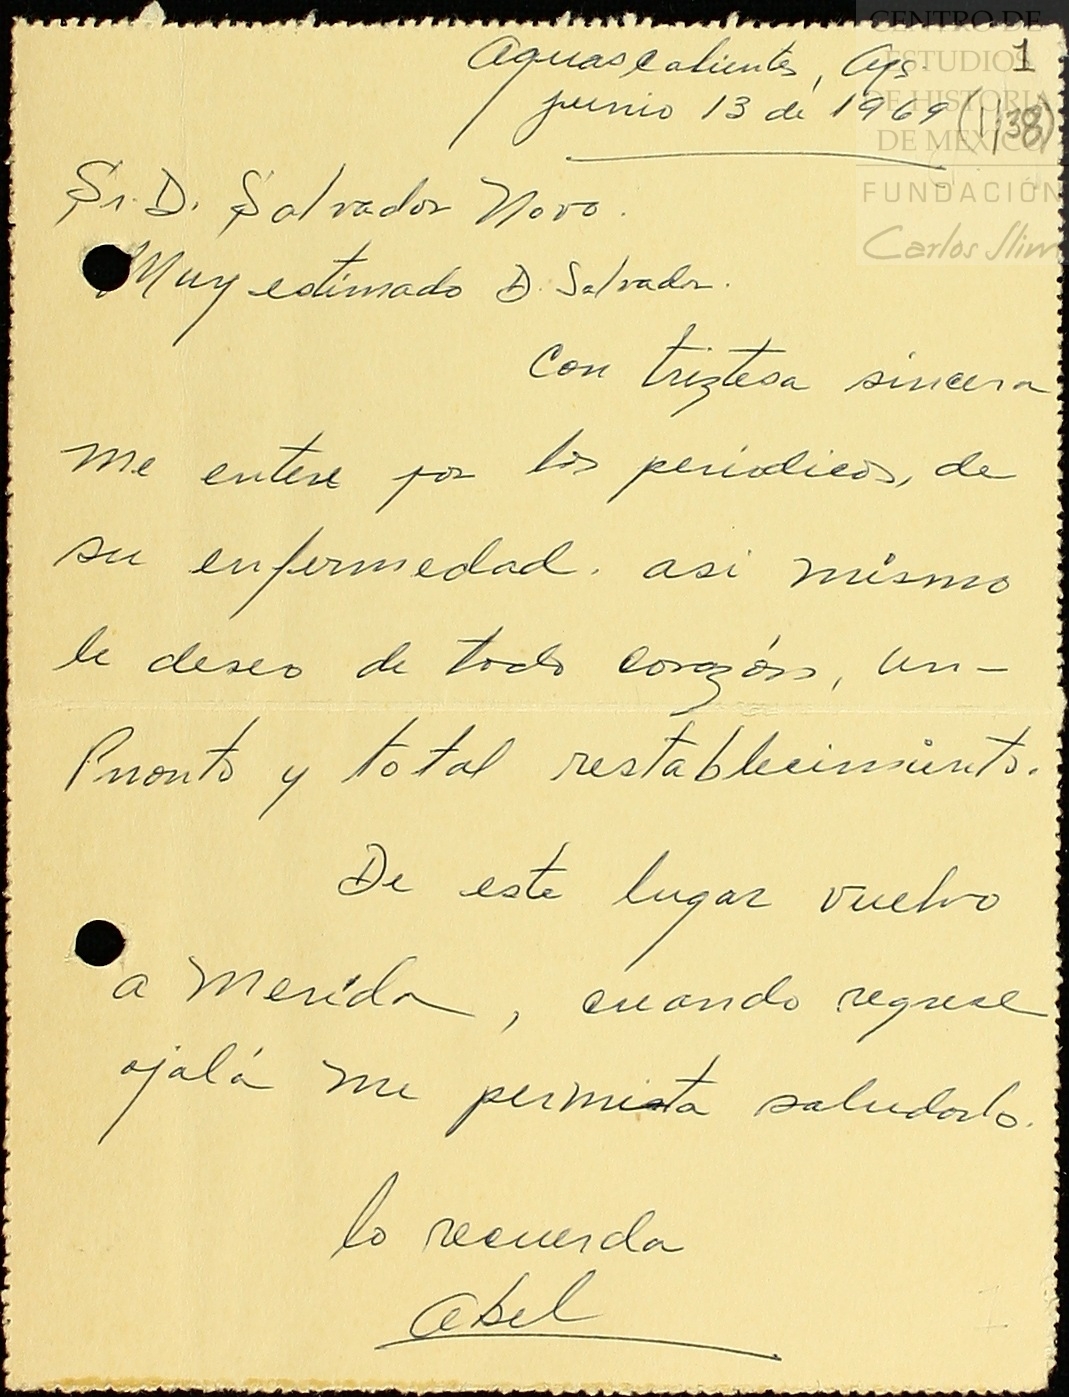 CENTRO DE
ESTUDIOS
DE HISTORIA
DE MEXICO
FUNDACIÓN
Carlos Slim
1
Aguascalientes, Ags.
junio 13 de 1969
(1138)
Sr. D. Salvador Novo.
Muy estimado D. Salvador.
Con triztesa sincera
me entere por los periodicos, de
su enfermedad. asi mismo
le deseo de todo corazón, un-
Pronto y total restablecimiento.
De este lugar vuelvo
a Merida, cuando regrese
ojalá me permista saludarlo.
lo recuerda
Abel